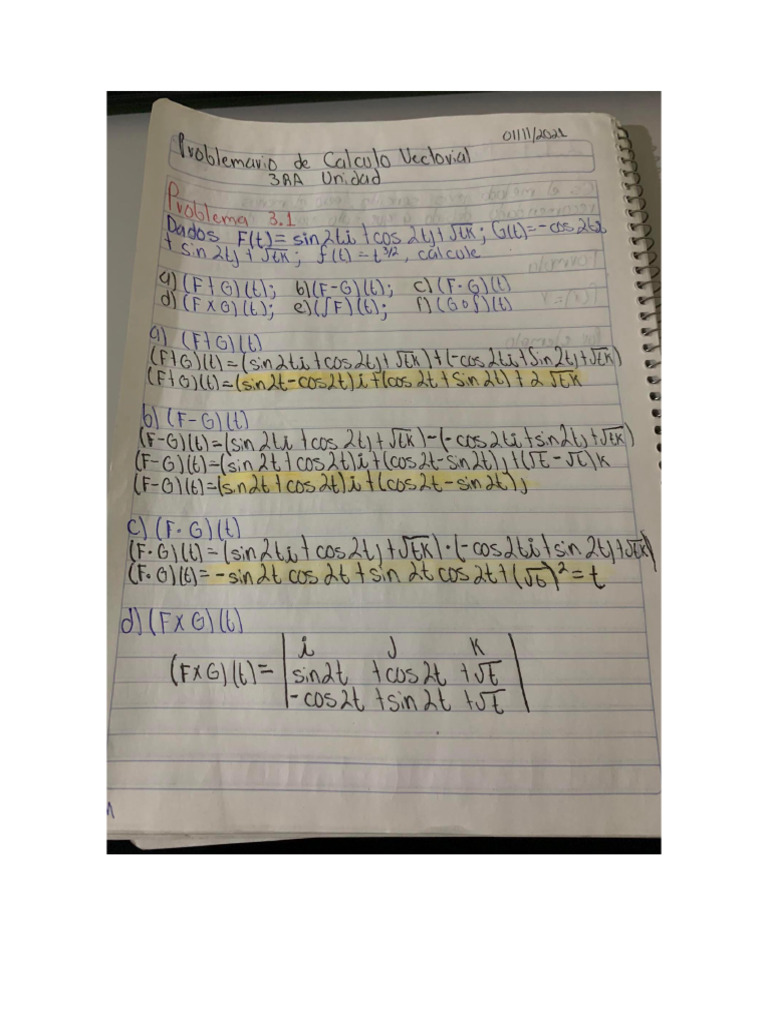 01/11/2021
Problemario de Calculo Vectorial
3RA Unidad
Problema 3.1
Dados F(t)= sin2ti + cos 2tj + √tK; G(t)=-cos 2ti
+ sin 2tj + √tK; f(t)=t^3/2, calcule
a)(F+G)(t); b)(F-G)(t); c)(F·G)(t)
d)(FxG)(t); e)(∫F)(t); f)(Gof)(t)
a) (F+G)(t)
(F+G)(t)=(sin2ti+cos2tj+√tK)+(-cos2ti+Sin2tj+√tK)
(F+G)(t)=(sin2t-cos2t)i+(cos2t+Sin2t)+2√tK
b)(F-G)(t)
(F-G)(t)=(sin2ti+cos2tj+√tK)-(-cos2ti+sin2tj+√tK)
(F-G)(t)=(sin2t+cos2t)i+(cos2t-Sin2t)j+(√t-√t)K
(F-G)(t)=(sin2t+cos2t)i+(cos2t-sin2t)j
c)(F·G)(t)
(F·G)(t)=(sin2ti+cos2tj+√tK)·(-cos2ti+sin2tj+√tK)
(F·G)(t)=-sin2t cos2t+sin 2t cos2t+(√t)²=t
d)(FxG)(t)
i j K
(FxG)(t)= sin2t +cos2t +√t
-cos2t +sin2t +√t